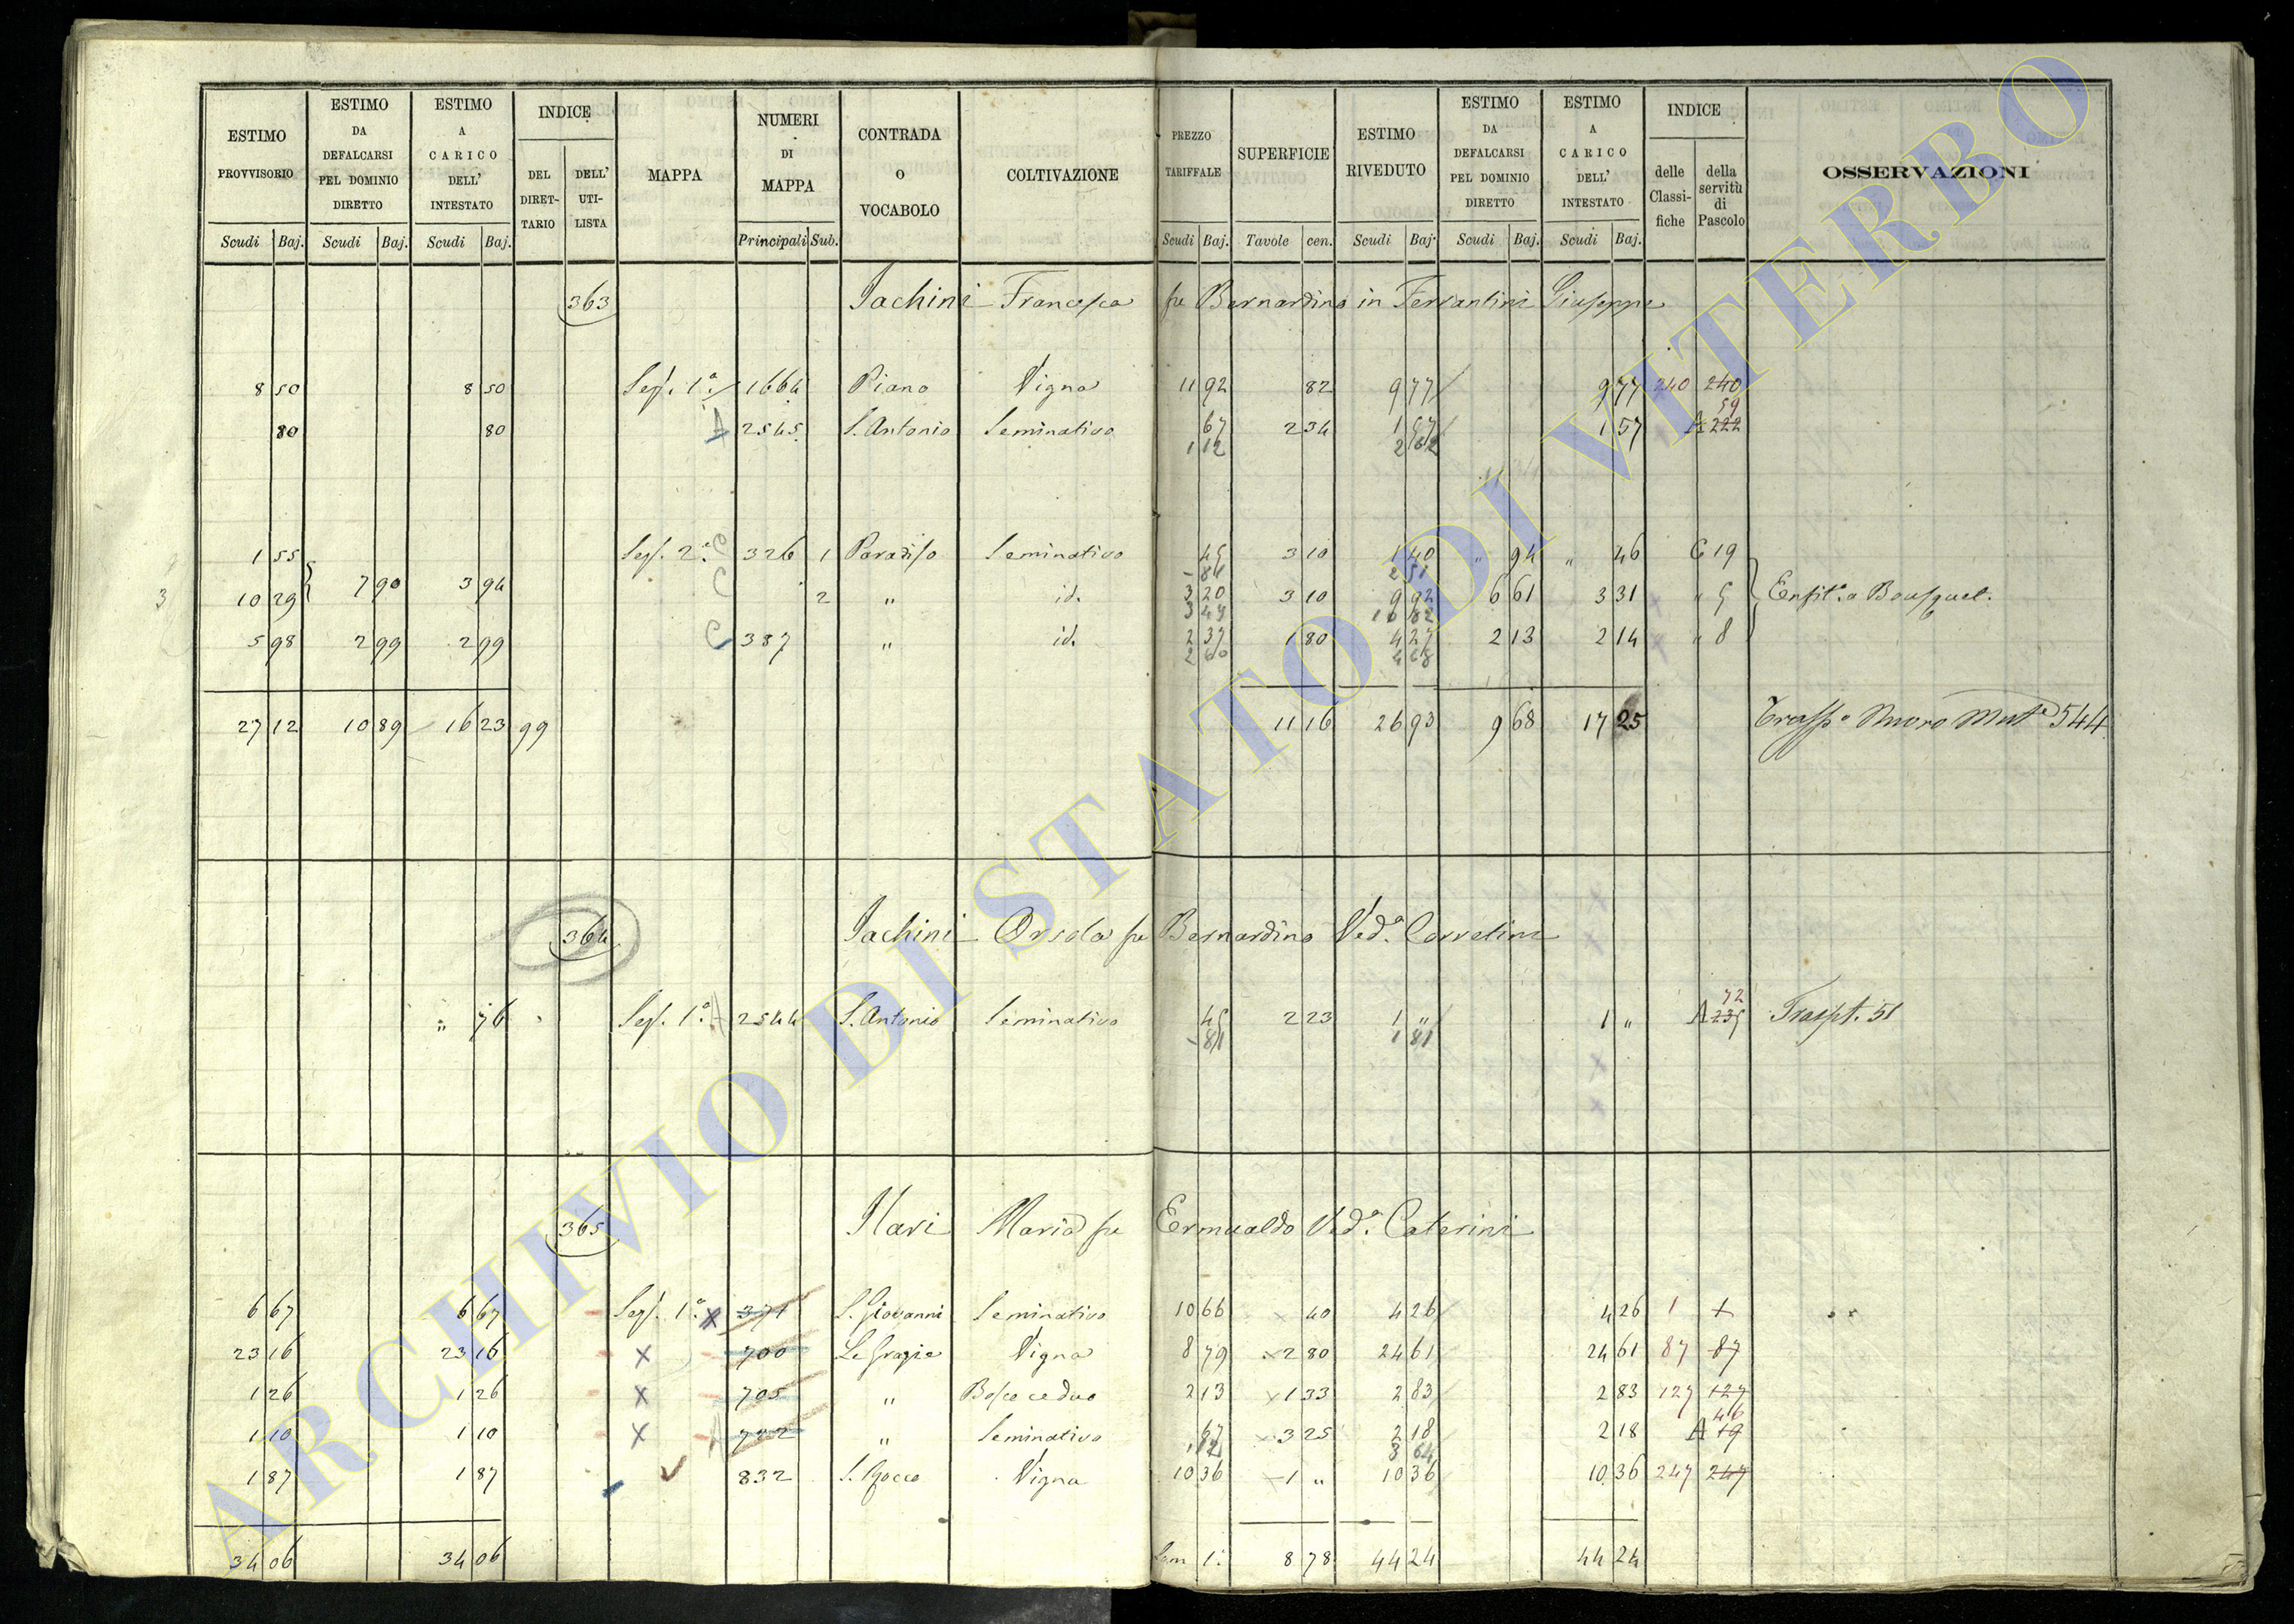 ESTIMO PROVVISORIO
ESTIMO DA DEFALCARSI PEL DOMINIO DIRETTO
ESTIMO A CARICO DELL' INTESTATO
INDICE
DEL DIRET-TARIO
DELL' UTI-LISTA
MAPPA
NUMERI DI MAPPA
CONTRADA O VOCABOLO
COLTIVAZIONE
PREZZO TARIFFALE
SUPERFICIE
ESTIMO RIVEDUTO
ESTIMO DA DEFALCARSI PEL DOMINIO DIRETTO
ESTIMO A CARICO DELL' INTESTATO
INDICE
delle Classi-fiche
della servitù di Pascolo
OSSERVAZIONI
Scudi Baj. Scudi Baj. Scudi Baj. Principali Sub. Scudi Baj. Tavole cen. Scudi Baj. Scudi Baj. Scudi Baj.
363 Iachini Francesca fu Bernardino in Ferrantini Giuseppe
8 50 8 50 Sez. 1ª 1664 Piano Vigna 11 92 82 9 77 9 77 240 240
59
80 80 A 2545 S. Antonio Seminativo 67 2 34 1 57 1 57 A 222
1 12 2 62
1 55 Sez. 2ª 326 1 Paradiso Seminativo 45 3 10 1 40 " 94 " 46 C 19
7 90 3 94 - 81 2 51
3 10 29 2 " id. 3 20 3 10 9 92 6 61 3 31 " 5 Enfit. a Bousquet.
3 49 10 82
5 98 2 99 2 99 387 " id. 2 37 1 80 4 27 2 13 2 14 " 8
2 60 4 68
27 12 10 89 16 23 99 11 16 26 93 9 68 17 25 Trasp.º Nuovo Mutº 544
364 Iachini Orsola fu Bernardino Vedª Corvelini
72
" 76 Sez. 1ª A 2544 S. Antonio Seminativo 45 2 23 1 " 1 " A 235 Traspt. 51
- 81 1 81
365 Ilari Maria fu Ermualdo Vedª Caterini
6 67 6 67 Sez. 1ª x 371 S. Giovanni Seminativo 10 66 x 40 4 26 4 26 1 1
23 16 23 16 x 700 Le Grazie Vigna 8 79 x 2 80 24 61 24 61 87 87
1 26 1 26 x 705 " Bosco ceduo 2 13 x 1 33 2 83 2 83 127 127
46
1 10 1 10 x A 722 " Seminativo 67 x 3 25 2 18 2 18 A 19
1 12 3 64
1 87 1 87 832 S. Rocco Vigna 10 36 1 " 10 36 10 36 247 247
34 06 34 06 8 78 44 24 44 24
ARCHIVIO DI STATO DI VITERBO